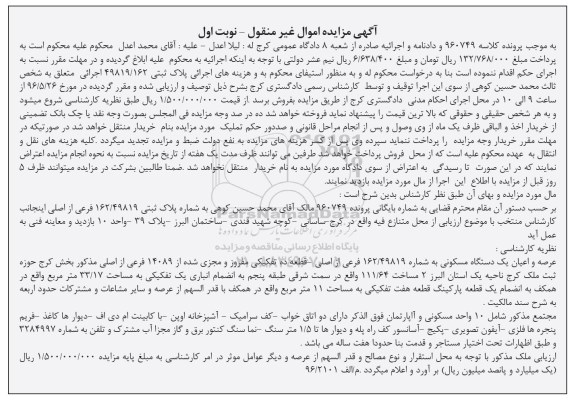 آگهی مزایده اموال غیر منقول - نوبت اول
به موجب پرونده کلاسه ۹۶۰۷۴۹ و دادنامه و اجرائیه صادره از شعبه ۸ دادگاه عمومی کرج له : لیلا اعدل - علیه : آقای محمد اعدل محکوم علیه محکوم است به
پرداخت مبلغ ۱۳۲/۷۶۸/۰۰۰ ریال تومان و مبلغ ۶/۶۳۸/۴۰۰ ریال نیم عشر دولتی با توجه به اینکه اجرائیه به محکوم علیه ابلاغ گردیده و در مهلت مقرر نسبت به
اجرای حکم اقدام ننموده است بنا به درخواست محکوم له و به منظور استیفای محکوم به و هزینه های اجرائی پلاک ثبتی ۴۹۸۱۹/۱۶۲ اجرائی متعلق به شخص
ثالث محمد حسین کوهی از سوی این اجرا توقیف و توسط کارشناس رسمی دادگستری کرج بشرح ذیل توصیف و ارزیابی شده و مقرر گردیده در مورخ ۹۶/۵/۲۶ از
ساعت ۹ الی ۱۰ در محل اجرای احکام مدنی دادگستری کرج از طریق مزایده بفروش برسد .از قیمت ۱/۵۰۰/۰۰۰/۰۰۰ ریال طبق نظریه کارشناسی شروع میشود
و به هر شخص حقیقی و حقوقی که بالا ترین قیمت را پیشنهاد نماید فروخته خواهد شد ده در صد وجه مزایده فی المجلس بصورت وجه نقد یا چک بانک تضمینی
از خریدار اخذ و الباقی ظرف یک ماه از وی وصول و پس از انجام مراحل قانونی و صددور حکم تملیک مورد مزایده بنام خریدار منتقل خواهد شد در صورتیکه در
مهلت مقرر خریدار وجه مزایده را پرداخت ننماید سپرده وی پس از کسر هزینه های مزایده به نفع دولت ضبط و مزایده تجدید میگردد .کلیه هزینه های نقل و
انتقال به عهده محکوم علیه است که از محل فروش پرداخت خواهد شد طرفین می توانند ظرف مدت یک هفته از تاریخ مزایده نسبت به نحوه انجام مزایده اعتراض
نمایند که در این صورت تا رسیدگی به اعتراض از سوی دادگاه مورد مزایده به نام خریدار منتقل نخواهد شد .ضمنا طالبین بشرکت در مزایده میتوانند ظرف ۵
روز قبل از مزایده با اطلاع این اجرا از مال مورد مزایده بازدید نمایند.
مال مورد مزایده و بهای آن طبق نظر کارشناس بدین شرح است :
بر حسب دستور آن مقام محترم قضایی به شماره بایگانی پرونده ۹۶۰۷۴۹ مالک آقای محمد حسین کوهی به شماره پلاک ثبتی ۱۶۲/۴۹۸۱۹ فرعی از اصلی اینجانب
کارشناس منتخب با موضوع ارزیابی از محل متنازع فیه واقع در کرج -ساسانی -کوچه شهید قندی -ساختمان البرز -پلاک ۳۹ -واحد ۱۰ بازدید و معاینه فنی به
عمل آید
نظریه کارشناسی :
عرصه و اعیان یک دستگاه مسکونی به شماره ۱۶۲/۴۹۸۱۹ فرعی از اصلی قطعه ده تفکیکی مفروز و مجزی شده از ۱۴۰۸۹ فرعی از اصلی مذکور بخش کرج حوزه
ثبت ملک کرج ناحیه یک استان البرز ۲ مساخت ۱۱۱/۶۴ واقع در سمت شرقی طبقه پنجم به انضمام انباری یک تفکیکی به مساحت ۳۳/۱۷ متر مربع واقع در
همکف به انضمام یک قطعه پارکینگ قطعه هفت تفکیکی به مساحت ۱۱ متر مربع واقع در همکف با قدر السهم از عرصه و سایر مشاعات و مشترکات حدود اربعه
به شرح سند مالکیت .
مجتمع مذکور شامل ۱۰ واحد مسکونی و آاپارتمان فوق الذکر دارای دو اتاق خواب -کف سرامیک - آشپزخانه اوپن -با کابینت ام دی اف -دیوار ها کاغذ -فریم
پنجره ها فلزی -آیفون تصویری -پکیج -آسانسور کف راه پله و دیوار ها تا ۱/۵ متر سنگ -نما سنگ کنتور برق و گاز مجزا آب مشترک و تلفن به شماره ۳۲۸۴۹۹۷
و طبق اظهارات تحت اختیار مستاجر و قدمت بنا حدودا هفت ساله می باشد .
ارزیابی ملک مذکور با توجه به محل استقرار و نوع مصالح و قدر السهم از عرصه و دیگر عوامل موثر در امر کارشناسی به مبلغ پایه مزایده ۱/۵۰۰/۰۰۰/۰۰۰ ریال
(یک میلیارد و پانصد میلیون ریال) بر آورد و اعلام میگردد .م/الف ۹۶/۲۱۰۱